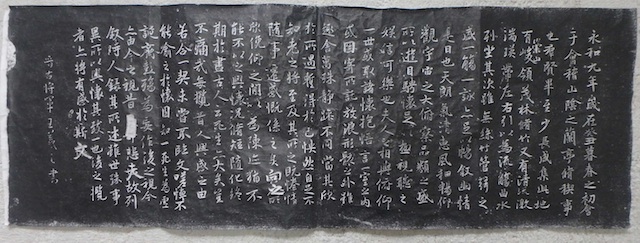 永和九年歲在癸丑暮春之初會
于會稽山陰之蘭亭脩稧事
也羣賢畢至少長咸集此地
有崇山峻領茂林脩竹又有清流激
湍暎帶左右引以為流觴曲水
列坐其次雖無絲竹管弦之
盛一觴一詠亦足以暢叙幽情
是日也天朗氣清惠風和暢仰
觀宇宙之大俯察品類之盛
所以遊目騁懷足以極視聽之
娛信可樂也夫人之相與俯仰
一世或取諸懷抱悟言一室之內
或因寄所託放浪形骸之外雖
趣舍萬殊靜躁不同當其欣
於所遇蹔得於己怏然自足不
知老之將至及其所之既惓情
隨事遷感慨係之矣向之所
欣俛仰之閒以為陳迹猶不
能不以之興懷況脩短隨化終
期於盡古人云死生亦大矣豈
不痛哉每攬昔人興感之由
若合一契未嘗不臨文嗟悼不
能喻之於懷固知一死生為虛
誕齊彭殤為妄作後之視今
亦由今之視昔悲夫故列
叙時人錄其所述雖世殊事
異所以興懷其致一也後之攬
者亦將有感於斯文
右將軍王羲之書